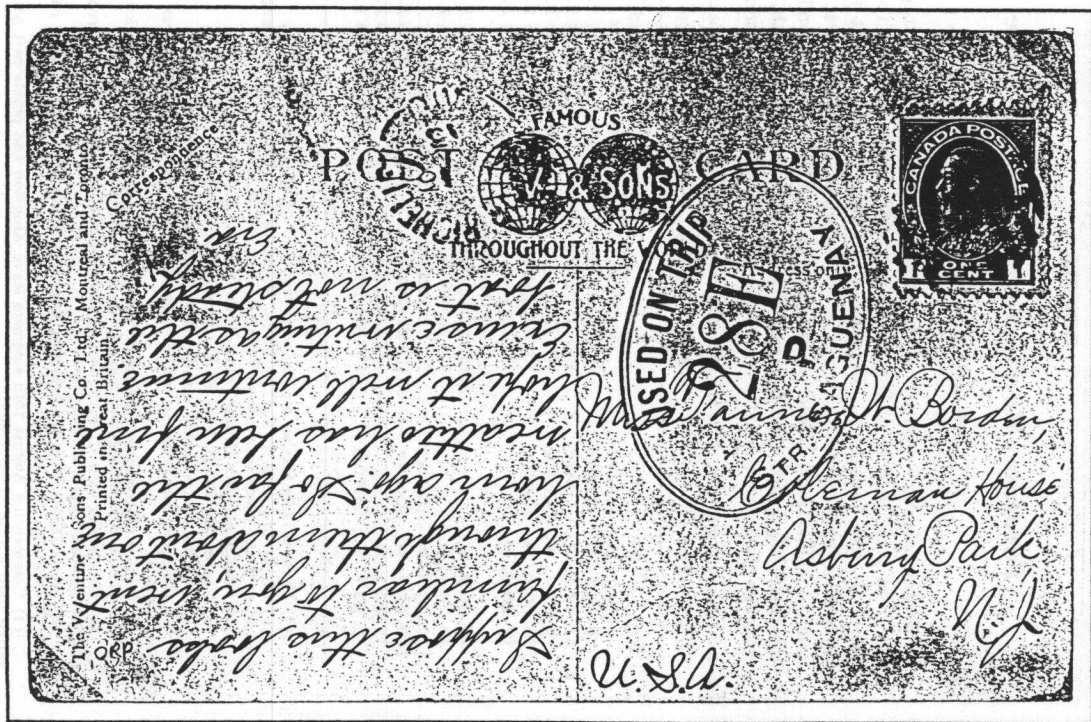 The Valentine & Sons Publishing Co. Ltd., Montreal and Toronto
Printed in Great Britain
Correspondence
FAMOUS
POST CARD
V. & SONS
THROUGHOUT THE
RICHELIEU
CANADA POSTAGE
1 ONE CENT 1
USED ON TRIP
28E
P
STR. SAGUENAY
Suppose this looks
familiar to you, went
through them about an
hour ago. So far the
weather has been fine
hope it will continue.
Excuse writing as the
boat is not steady
W. Borden,
Coleman House
Asbury Park,
N.J.
U.S.A.
ORP